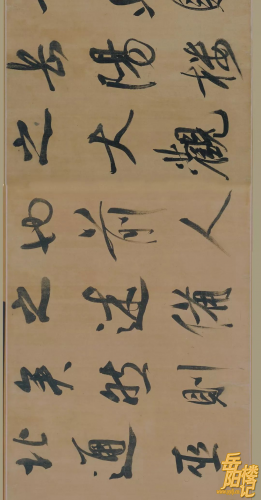 岳陽樓
之大觀
也前人
之述備
矣然則
北通巫
岳阳楼记